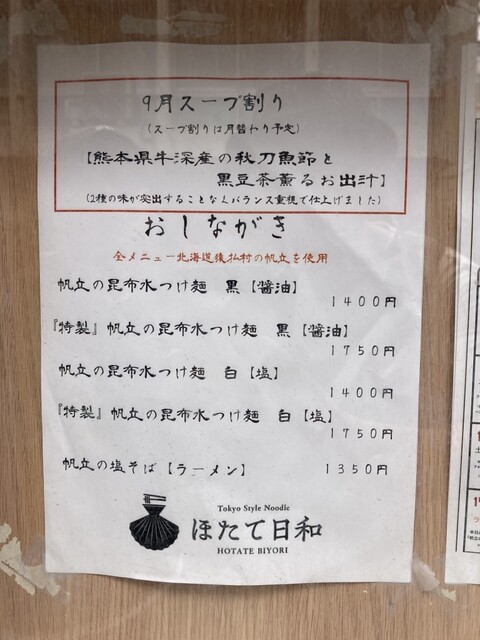 9月スープ割り
(スープ割りは月替わり予定)
【熊本県牛深産の秋刀魚節と
黒豆茶薫るお出汁】
(2種の味が突出することなくバランス重視で仕上げました)
おしながき
全メニュー北海道猿払村の帆立を使用
帆立の昆布水つけ麺 黒【醤油】
1400円
『特製』帆立の昆布水つけ麺 黒【醤油】
1750円
帆立の昆布水つけ麺 白【塩】
1400円
『特製』帆立の昆布水つけ麺 白【塩】
1750円
帆立の塩そば【ラーメン】 1350円
Tokyo Style Noodle
ほたて日和
HOTATE BIYORI